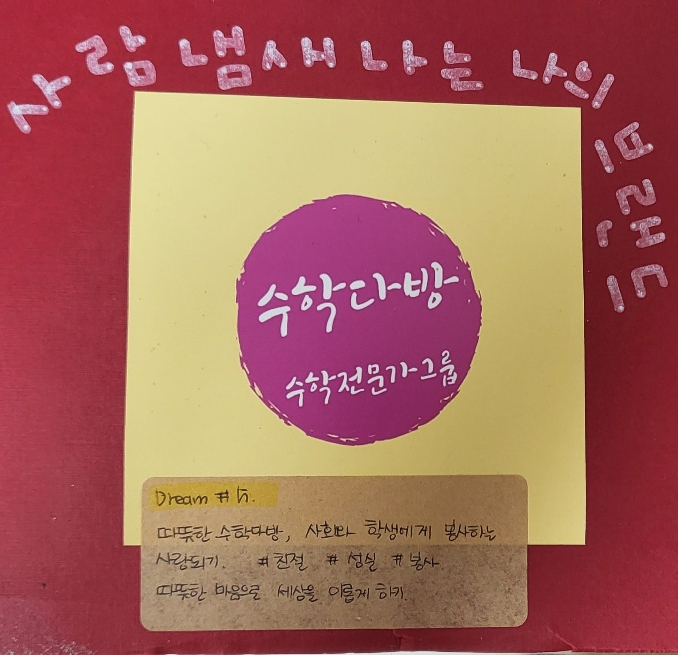 사람 냄새 나는 나의 브랜드
수학다방
수학전문가그룹
Dream #5.
따뜻한 수학다방, 사회와 학생에게 봉사하는
사람되기. #친절 #성실 #봉사
따뜻한 마음으로 세상을 이롭게 하기.